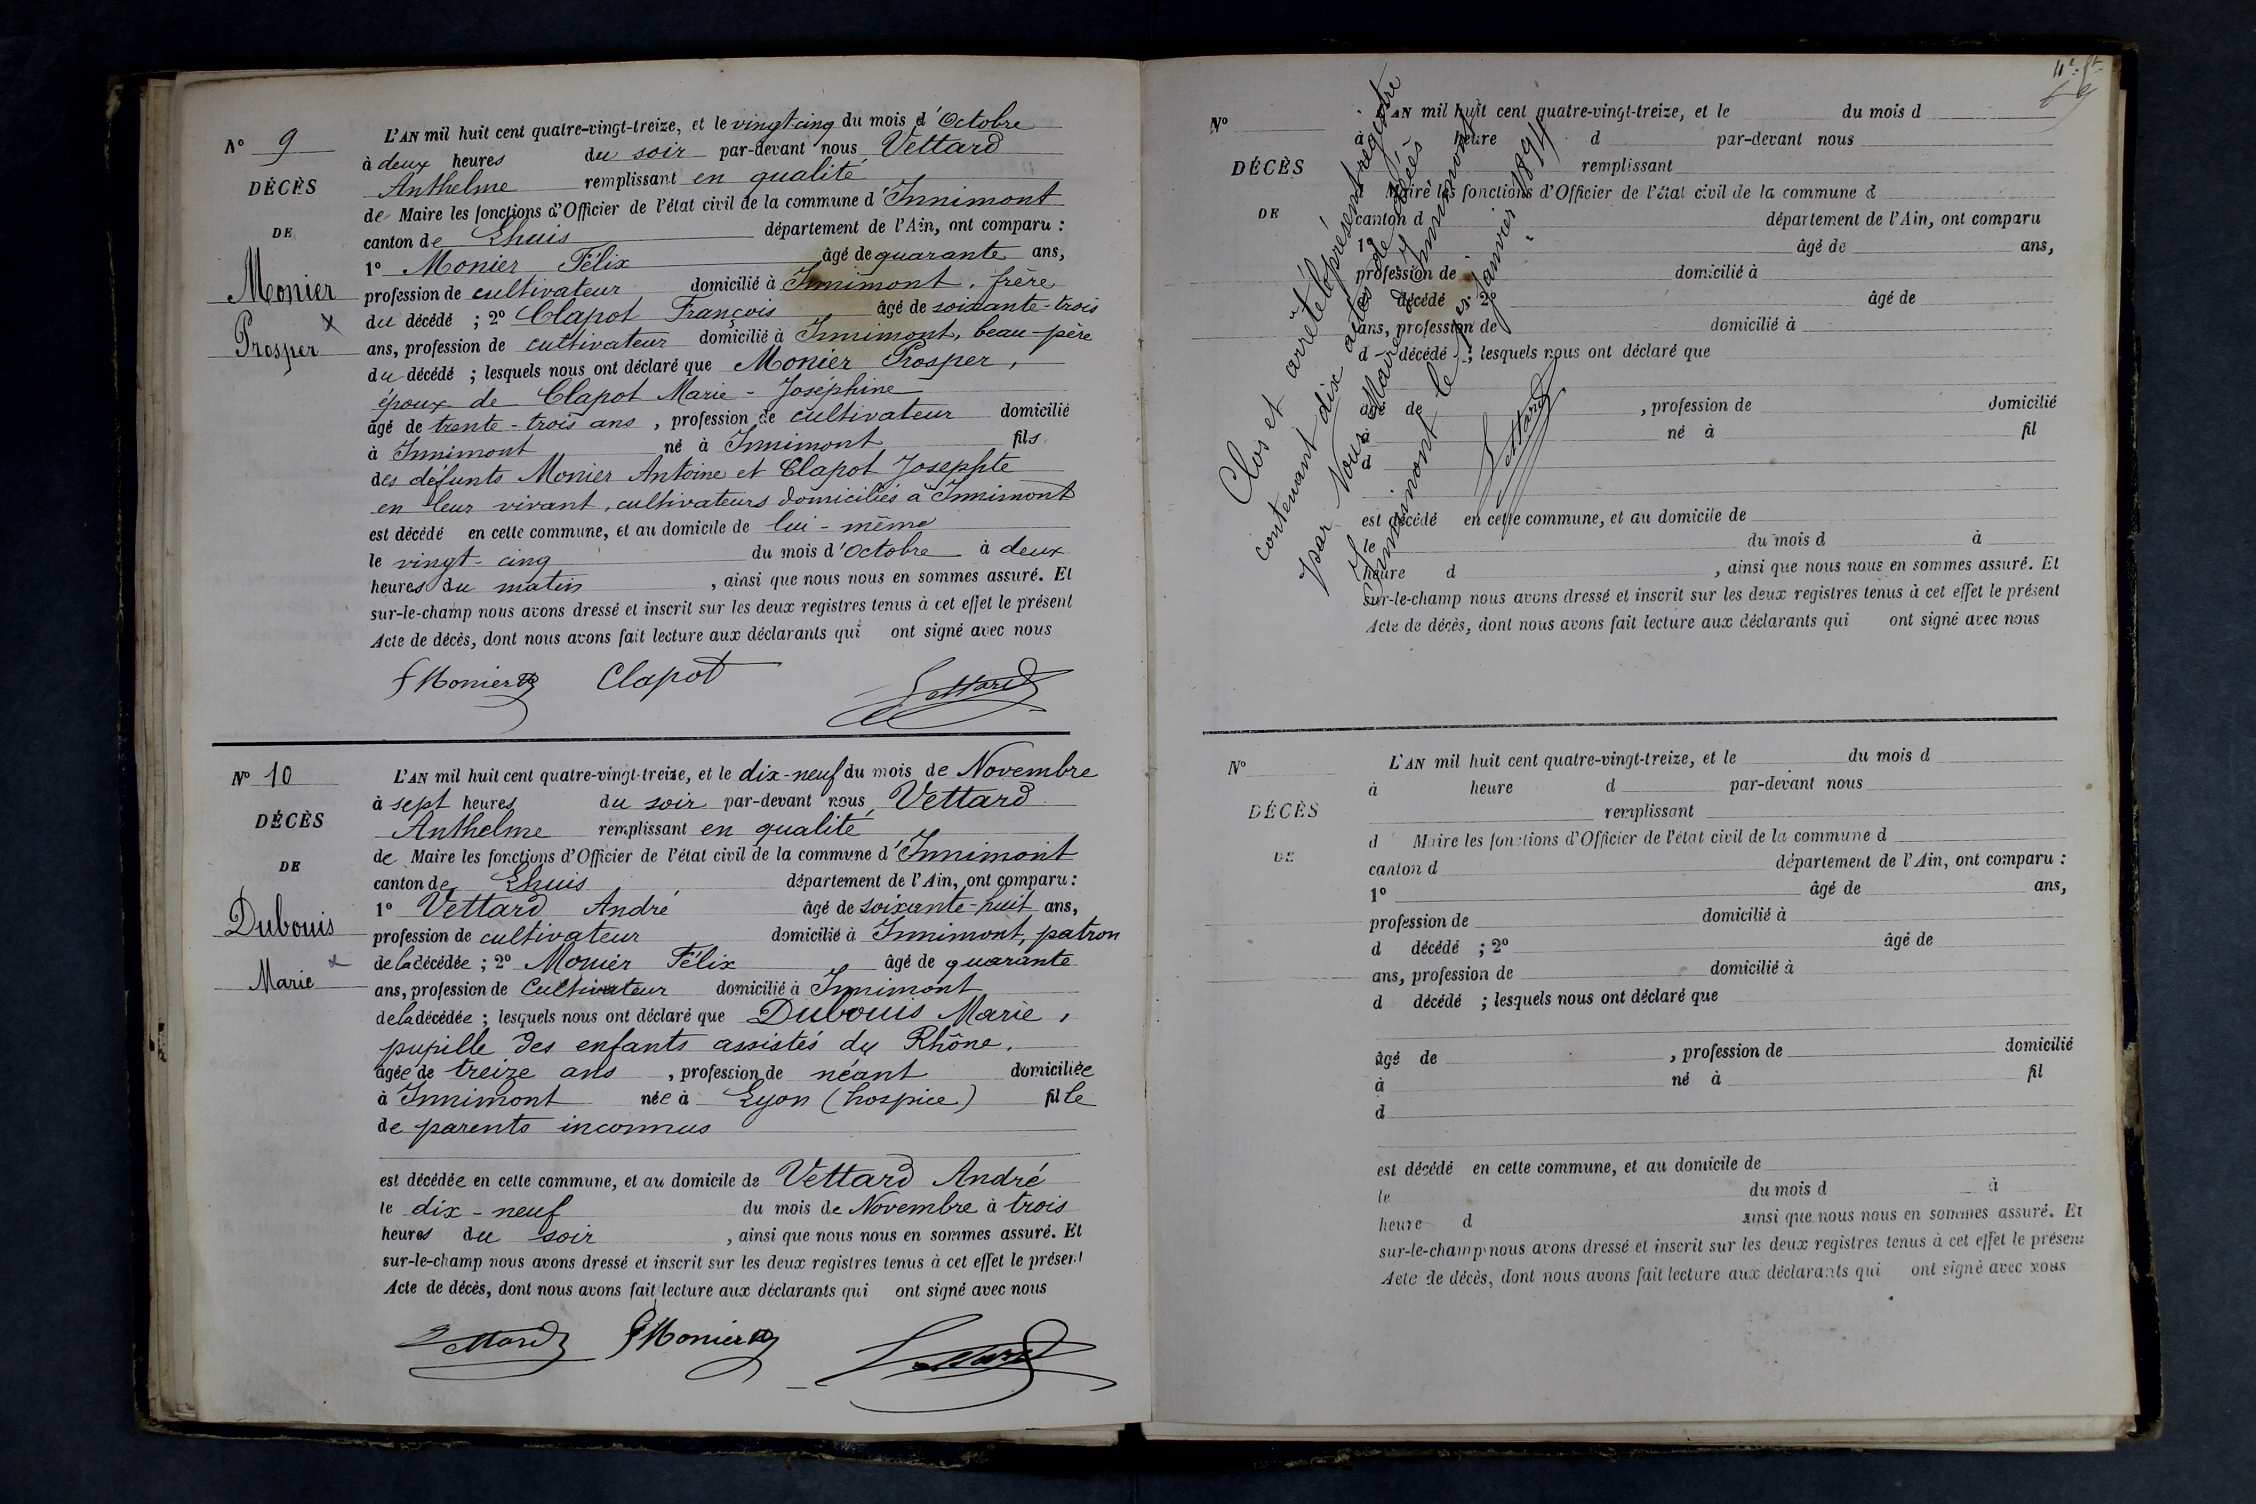 N° 9
DÉCÈS
DE
Monier
Prosper
L'AN mil huit cent quatre-vingt-treize, et le vingt cinq du mois d'Octobre
à deux heures du soir par-devant nous Vettard
Anthelme remplissant en qualité
de Maire les fonctions d'Officier de l'état civil de la commune d'Innimont
canton de Lhuis département de l'Ain, ont comparu :
1° Monier Félix âgé de quarante ans,
profession de cultivateur domicilié à Innimont, frère
du décédé ; 2° Clapot François âgé de soixante-trois
ans, profession de cultivateur domicilié à Innimont, beau-père
du décédé ; lesquels nous ont déclaré que Monier Prosper,
époux de Clapot Marie-Joséphine
âgé de trente-trois ans, profession de cultivateur domicilié
à Innimont né à Innimont fils
des défunts Monier Antoine et Clapot Josephte
en leur vivant, cultivateurs domiciliés à Innimont
est décédé en cette commune, et au domicile de lui-même
le vingt-cinq du mois d'Octobre à deux
heures du matin, ainsi que nous nous en sommes assuré. Et
sur-le-champ nous avons dressé et inscrit sur les deux registres tenus à cet effet le présent
Acte de décès, dont nous avons fait lecture aux déclarants qui ont signé avec nous
F Monier Clapot Vettard
N° 10
DÉCÈS
DE
Dubouis
Marie
L'AN mil huit cent quatre-vingt-treize, et le dix-neuf du mois de Novembre
à sept heures du soir par-devant nous Vettard
Anthelme remplissant en qualité
de Maire les fonctions d'Officier de l'état civil de la commune d'Innimont
canton de Lhuis département de l'Ain, ont comparu :
1° Vettard André âgé de soixante-huit ans,
profession de cultivateur domicilié à Innimont, patron
de la décédée ; 2° Monier Félix âgé de quarante
ans, profession de Cultivateur domicilié à Innimont
de la décédée ; lesquels nous ont déclaré que Dubouis Marie,
pupille des enfants assistés du Rhône,
âgée de treize ans, profession de néant domiciliée
à Innimont née à Lyon (hospice) fille
de parents inconnus
est décédée en cette commune, et au domicile de Vettard André
le dix-neuf du mois de Novembre à trois
heures du soir, ainsi que nous nous en sommes assuré. Et
sur-le-champ nous avons dressé et inscrit sur les deux registres tenus à cet effet le présent
Acte de décès, dont nous avons fait lecture aux déclarants qui ont signé avec nous
Vettard F Monier Vettard
N°
DÉCÈS
DE
L'AN mil huit cent quatre-vingt-treize, et le du mois d
à heure d par-devant nous
remplissant
Maire les fonctions d'Officier de l'état civil de la commune d
canton d département de l'Ain, ont comparu
1° âgé de ans,
profession de domicilié à
d décédé 2° âgé de
ans, profession de domicilié à
d décédé ; lesquels nous ont déclaré que
âgé de , profession de domicilié
à né à fil
d
est décédé en cette commune, et au domicile de
le du mois d à
heure d , ainsi que nous nous en sommes assuré. Et
sur-le-champ nous avons dressé et inscrit sur les deux registres tenus à cet effet le présent
Acte de décès, dont nous avons fait lecture aux déclarants qui ont signé avec nous
Clos et arrêté le présent registre
contenant dix actes de décès
par Nous Maire d'Innimont
Innimont le 1er Janvier 1894
Vettard
N°
DÉCÈS
DE
L'AN mil huit cent quatre-vingt-treize, et le du mois d
à heure d par-devant nous
remplissant
d Maire les fonctions d'Officier de l'état civil de la commune d
canton d département de l'Ain, ont comparu :
1° âgé de ans,
profession de domicilié à
d décédé ; 2° âgé de
ans, profession de domicilié à
d décédé ; lesquels nous ont déclaré que
âgé de , profession de domicilié
à né à fil
d
est décédé en cette commune, et au domicile de
le du mois d à
heure d ainsi que nous nous en sommes assuré. Et
sur-le-champ nous avons dressé et inscrit sur les deux registres tenus à cet effet le présent
Acte de décès, dont nous avons fait lecture aux déclarants qui ont signé avec nous